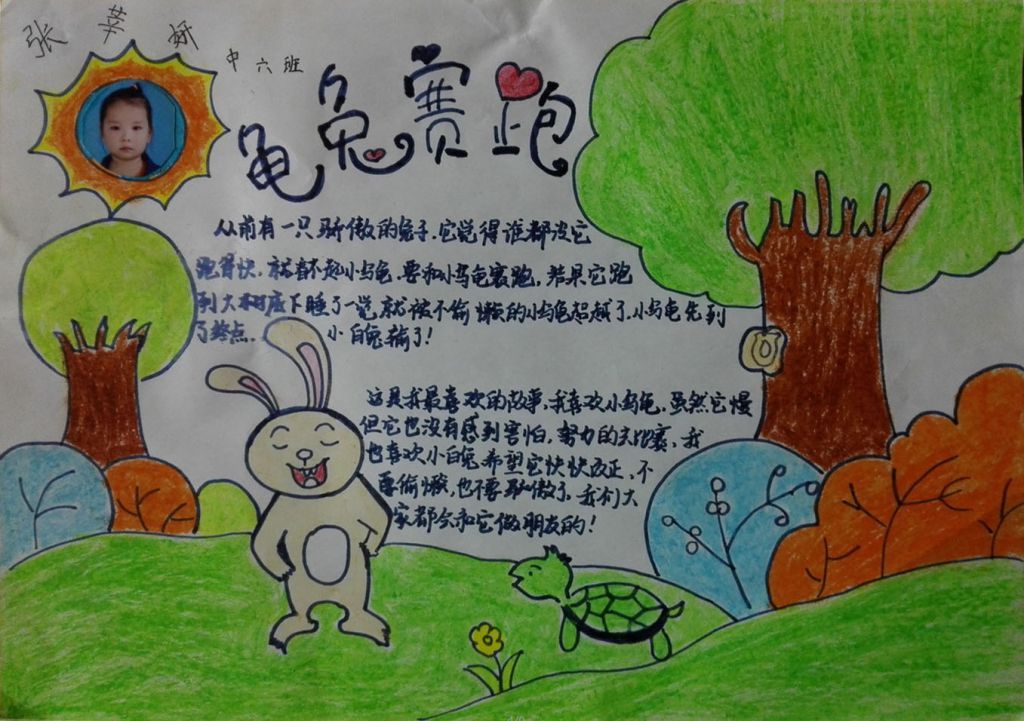 张莘妍
中六班
龟兔赛跑
从前有一只骄傲的兔子，它觉得谁都没它
跑得快，就看不起小乌龟，要和小乌龟赛跑，结果它跑
到大树底下睡了一觉，就被不偷懒的小乌龟超越了，小乌龟先到
了终点。小白兔输了！
这是我最喜欢的故事，我喜欢小乌龟，虽然它慢
但它也没有感到害怕，努力的去比赛，我
也喜欢小白兔，希望它快快改正，不
要偷懒，也不要骄傲了，我们大
家都会和它做朋友的！